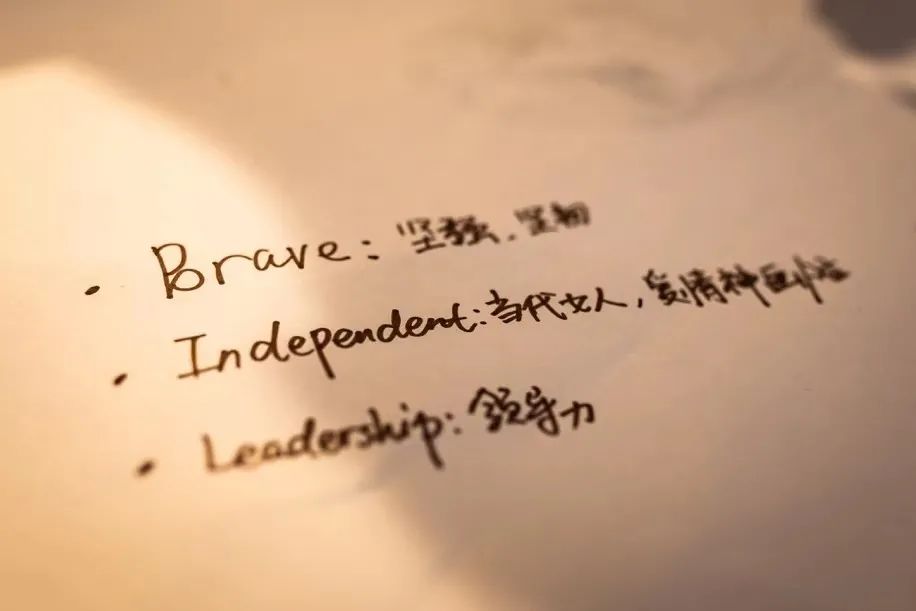 • Brave: 坚强、坚韧
• Independent: 当代女人,精神
• Leadership: 领导力